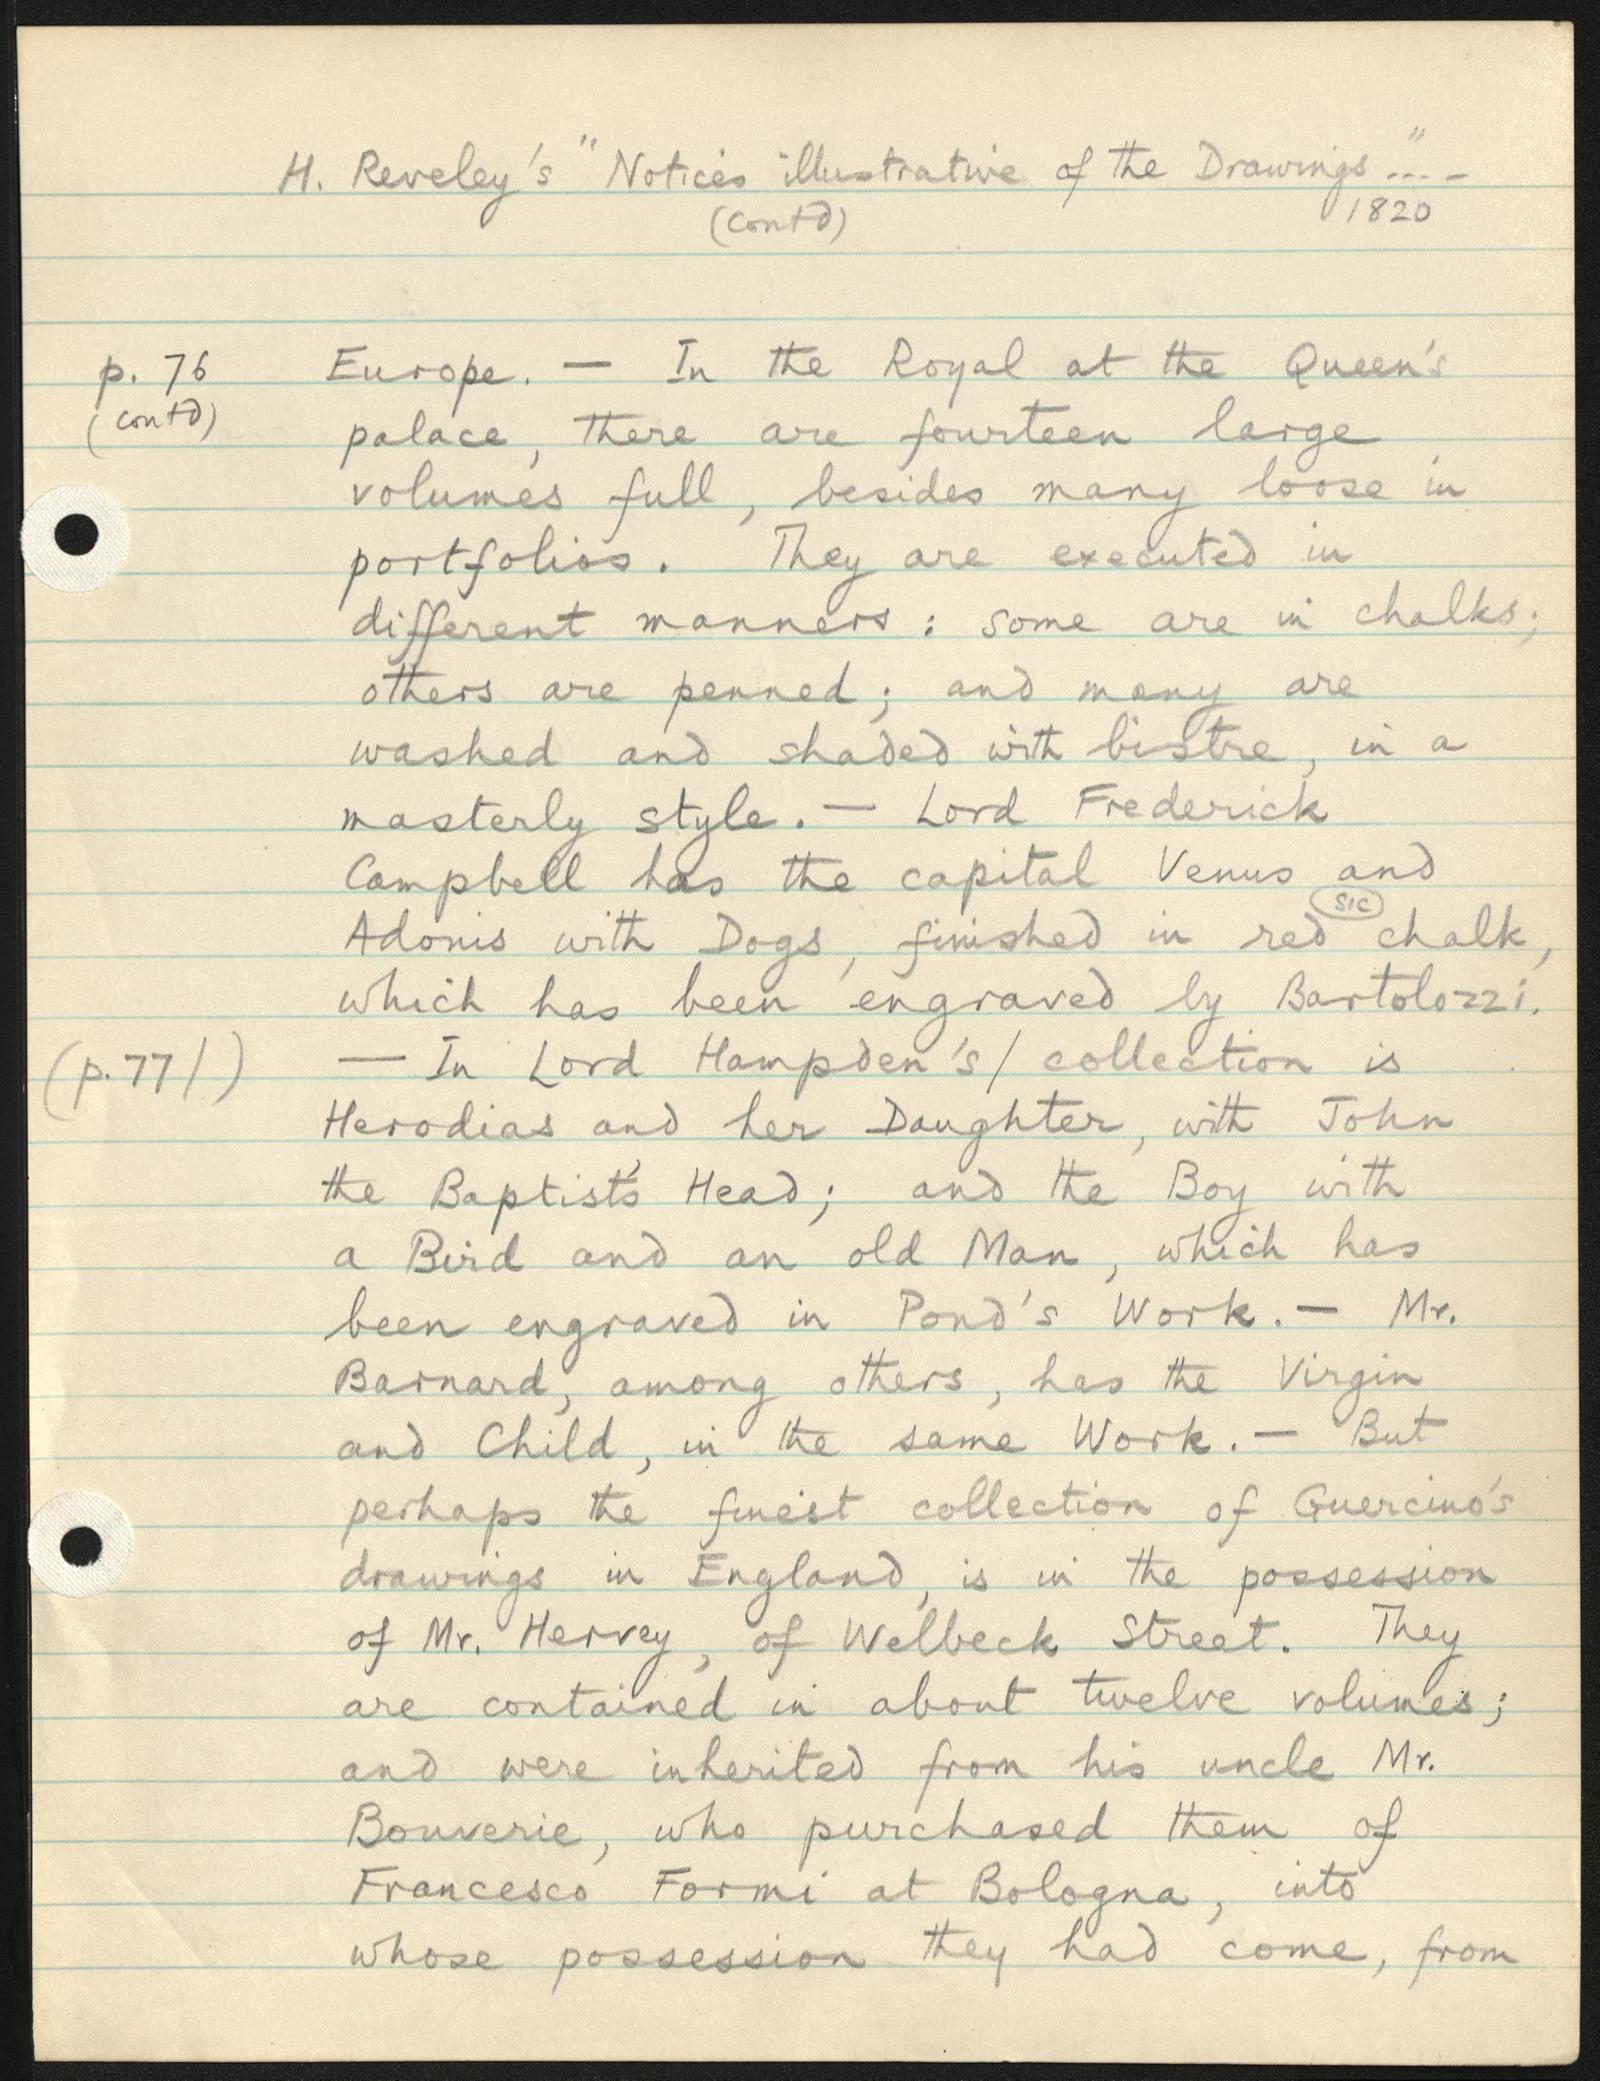 H. Reveley's "Notices illustrative of the Drawings...."
(contd) 1820
p. 76 Europe. — In the Royal at the Queen's
(contd) palace, there are fourteen large
volumes full, besides many loose in
portfolios. They are executed in
different manners: some are in chalks;
others are penned; and many are
washed and shaded with bistre, in a
masterly style. — Lord Frederick
Campbell has the capital Venus and
Adonis with Dogs, finished in red (sic) chalk,
which has been engraved by Bartolozzi.
(p. 77/) — In Lord Hampden's/ collection is
Herodias and her Daughter, with John
the Baptist's Head; and the Boy with
a Bird and an old Man, which has
been engraved in Pond's Work. — Mr.
Barnard, among others, has the Virgin
and Child, in the same Work. — But
perhaps the finest collection of Guercino's
drawings in England, is in the possession
of Mr. Hervey, of Welbeck Street. They
are contained in about twelve volumes;
and were inherited from his uncle Mr.
Bouverie, who purchased them of
Francesco Formi at Bologna, into
whose possession they had come, from